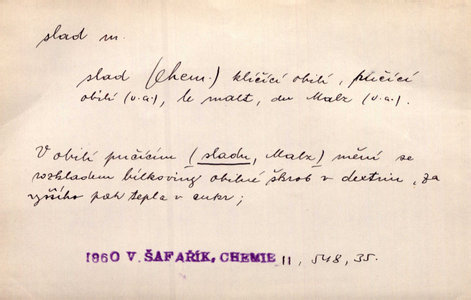 slad m.
slad (chem.) klíčící obilí, pučící
obilí (v.a.), le malt, du Malz (v.a.).
V obilí pučícím (sladu, Malz) mění se
rozkladem bílkoviny obilné škrob v dextrin, za
vyššího pak tepla v cukr;
1860 V. ŠAFAŘÍK, CHEMIE II, 548, 35.